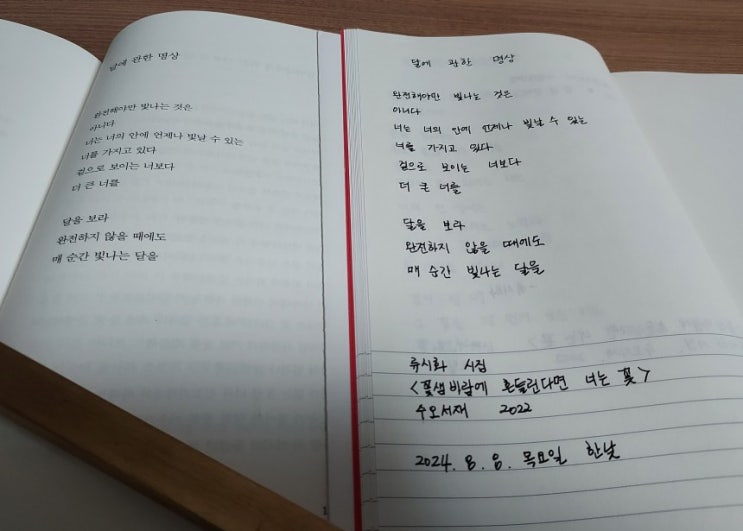 달에 관한 명상
완전해야만 빛나는 것은
아니다
너는 너의 안에 언제나 빛날 수 있는
너를 가지고 있다
겉으로 보이는 너보다
더 큰 너를
달을 보라
완전하지 않을 때에도
매 순간 빛나는 달을
달에 관한 명상
완전해야만 빛나는 것은
아니다
너는 너의 안에 언제나 빛날 수 있는
너를 가지고 있다
겉으로 보이는 너보다
더 큰 너를
달을 보라
완전하지 않을 때에도
매 순간 빛나는 달을
류시화 시집
<꽃샘바람에 흔들린다면 너는 꽃>
수오서재 2022
2024. 8. 8. 목요일 한낮